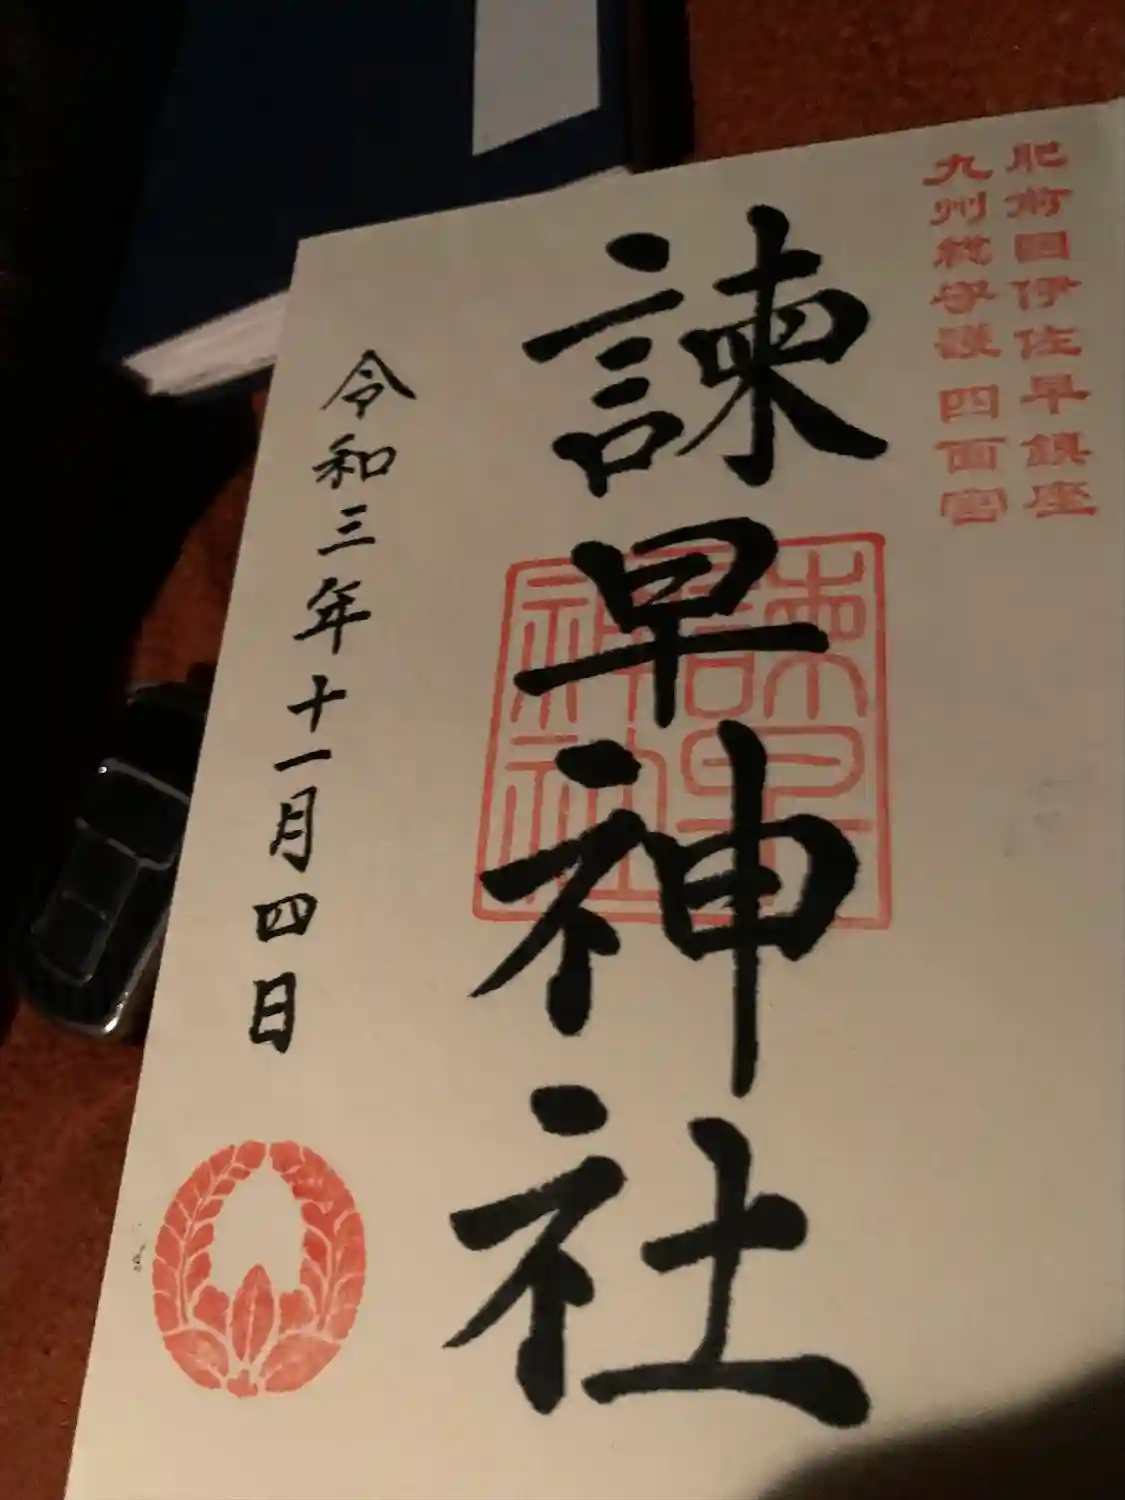 肥前国伊佐早鎮座
九州総守護 四面宮
諫早神社
諫早神社
令和三年十一月四日